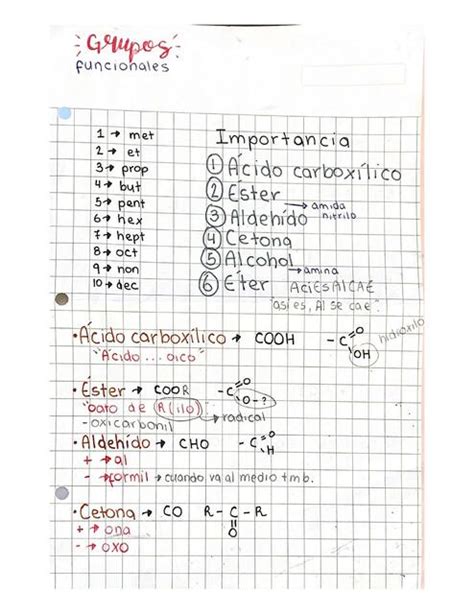 Grupos
funcionales
1 → met
2 → et
3 → prop
4 → but
5 → pent
6 → hex
7 → hept
8 → oct
9 → non
10 → dec
Importancia
① Ácido carboxílico
② Éster
→ amida
③ Aldehído nitrilo
④ Cetona
⑤ Alcohol
→ amina
⑥ Éter ACIESAlCAE
"asi es, Al se cae"
• Ácido carboxílico → COOH - C =O OH hidroxilo
"Ácido ... oico"
• Éster → COOR - C =O O-?
"oato de R(ilo) → radical
- oxicarbonil
• Aldehído → CHO - C =O - H
+ → al
- → formil → cuando va al medio tmb.
• Cetona → CO R - C - R
+ → ona O
- → oxo